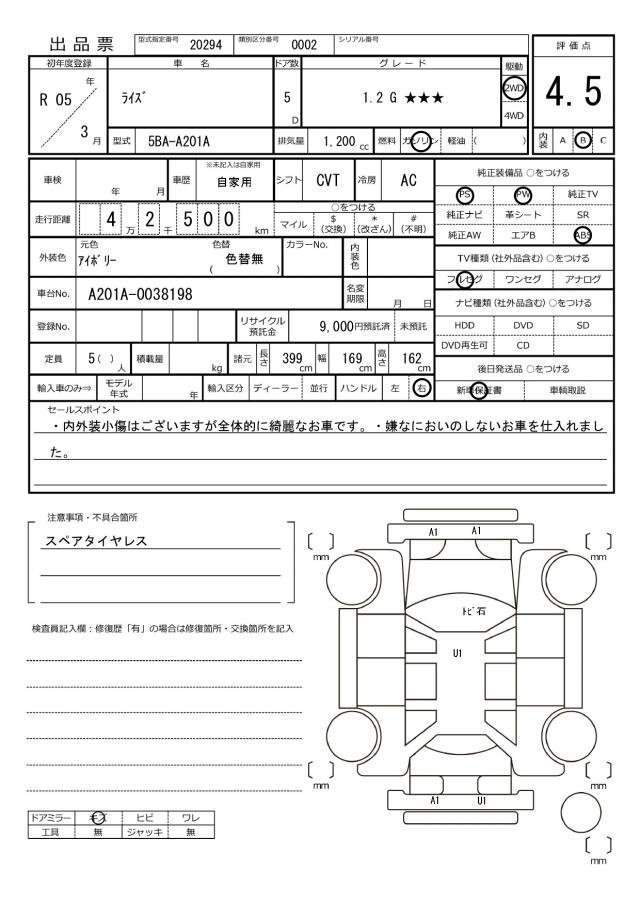 出品票 型式指定番号 20294 類別区分番号 0002 シリアル番号
評価点
4.5
内装 A B C
初年度登録 車名 ドア数 グレード 駆動
R 05 年 3 月
ライズ 5 D 1.2 G ★★★ 2WD
4WD
型式 5BA-A201A 排気量 1.200 cc 燃料 ガソリン 軽油 ( )
車検 年 月 車歴 ※未記入は自家用 自家用 シフト CVT 冷房 AC
走行距離 4 万 2 千 5 0 0 km ○をつける
マイル $(交換) *(改ざん) #(不明)
外装色 元色 アイボリー 色替 色替無 ( ) カラーNo. 内装色
車台No. A201A-0038198 名変期限 月 日
登録No. リサイクル預託金 9,000円預託済 未預託
定員 5 ( ) 人 積載量 kg 諸元 長さ 399 cm 幅 169 cm 高さ 162 cm
輸入車のみ⇒ モデル年式 年 輸入区分 ディーラー 並行 ハンドル 左 右
純正装備品 ○をつける
PS PW 純正TV
純正ナビ 革シート SR
純正AW エアB ABS
TV種類(社外品含む) ○をつける
フルセグ ワンセグ アナログ
ナビ種類(社外品含む) ○をつける
HDD DVD SD
DVD再生可 CD
後日発送品 ○をつける
新車保証書 車輌取説
セールスポイント
・内外装小傷はございますが全体的に綺麗なお車です。・嫌なにおいのしないお車を仕入れまし
た。
注意事項・不具合箇所
スペアタイヤレス
検査員記入欄:修復歴「有」の場合は修復箇所・交換箇所を記入
ドアミラー キズ ヒビ ワレ
工具 無 ジャッキ 無
A1 A1
mm mm
トビ石
U1
mm mm
A1 U1
mm